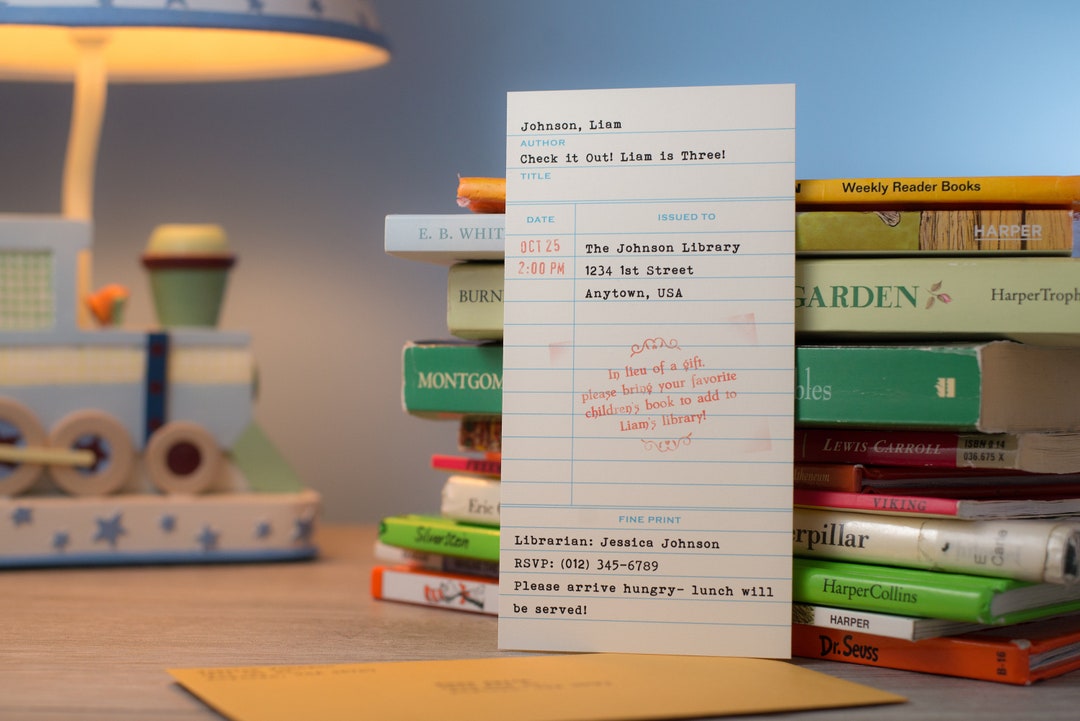 Johnson, Liam
AUTHOR
Check it Out! Liam is Three!
TITLE
DATE
ISSUED TO
OCT 25
2:00 PM
The Johnson Library
1234 1st Street
Anytown, USA
In lieu of a gift.
please bring your favorite
children's book to add to
Liam's library!
FINE PRINT
Librarian: Jessica Johnson
RSVP: (012) 345-6789
Please arrive hungry- lunch will
be served!
Weekly Reader Books
E. B. WHIT
HARPER
BURN
GARDEN
HarperTroph
MONTGOM
bles
LEWIS CARROLL
ISBN 0 14
036 675 X
Atheneum
VIKING
Eric
erpillar
Silverstein
HarperCollins
HARPER
Dr. Seuss
B-16